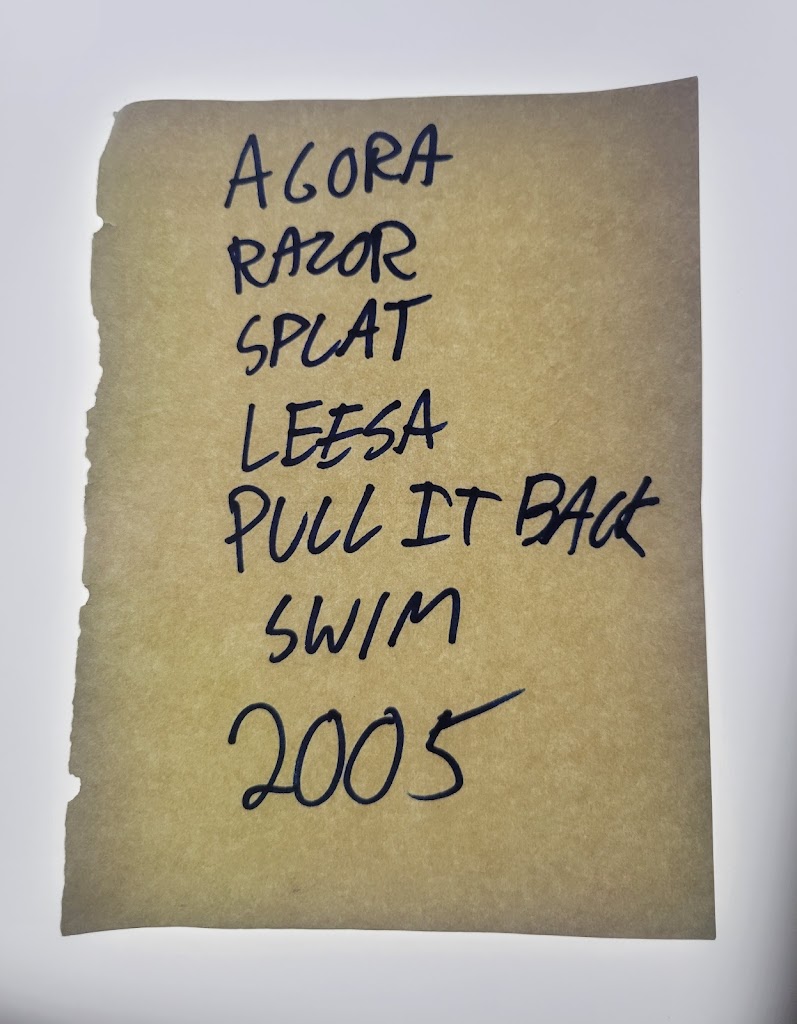 AGORA
RAZOR
SPLAT
LEESA
PULL IT BACK
SWIM
2005